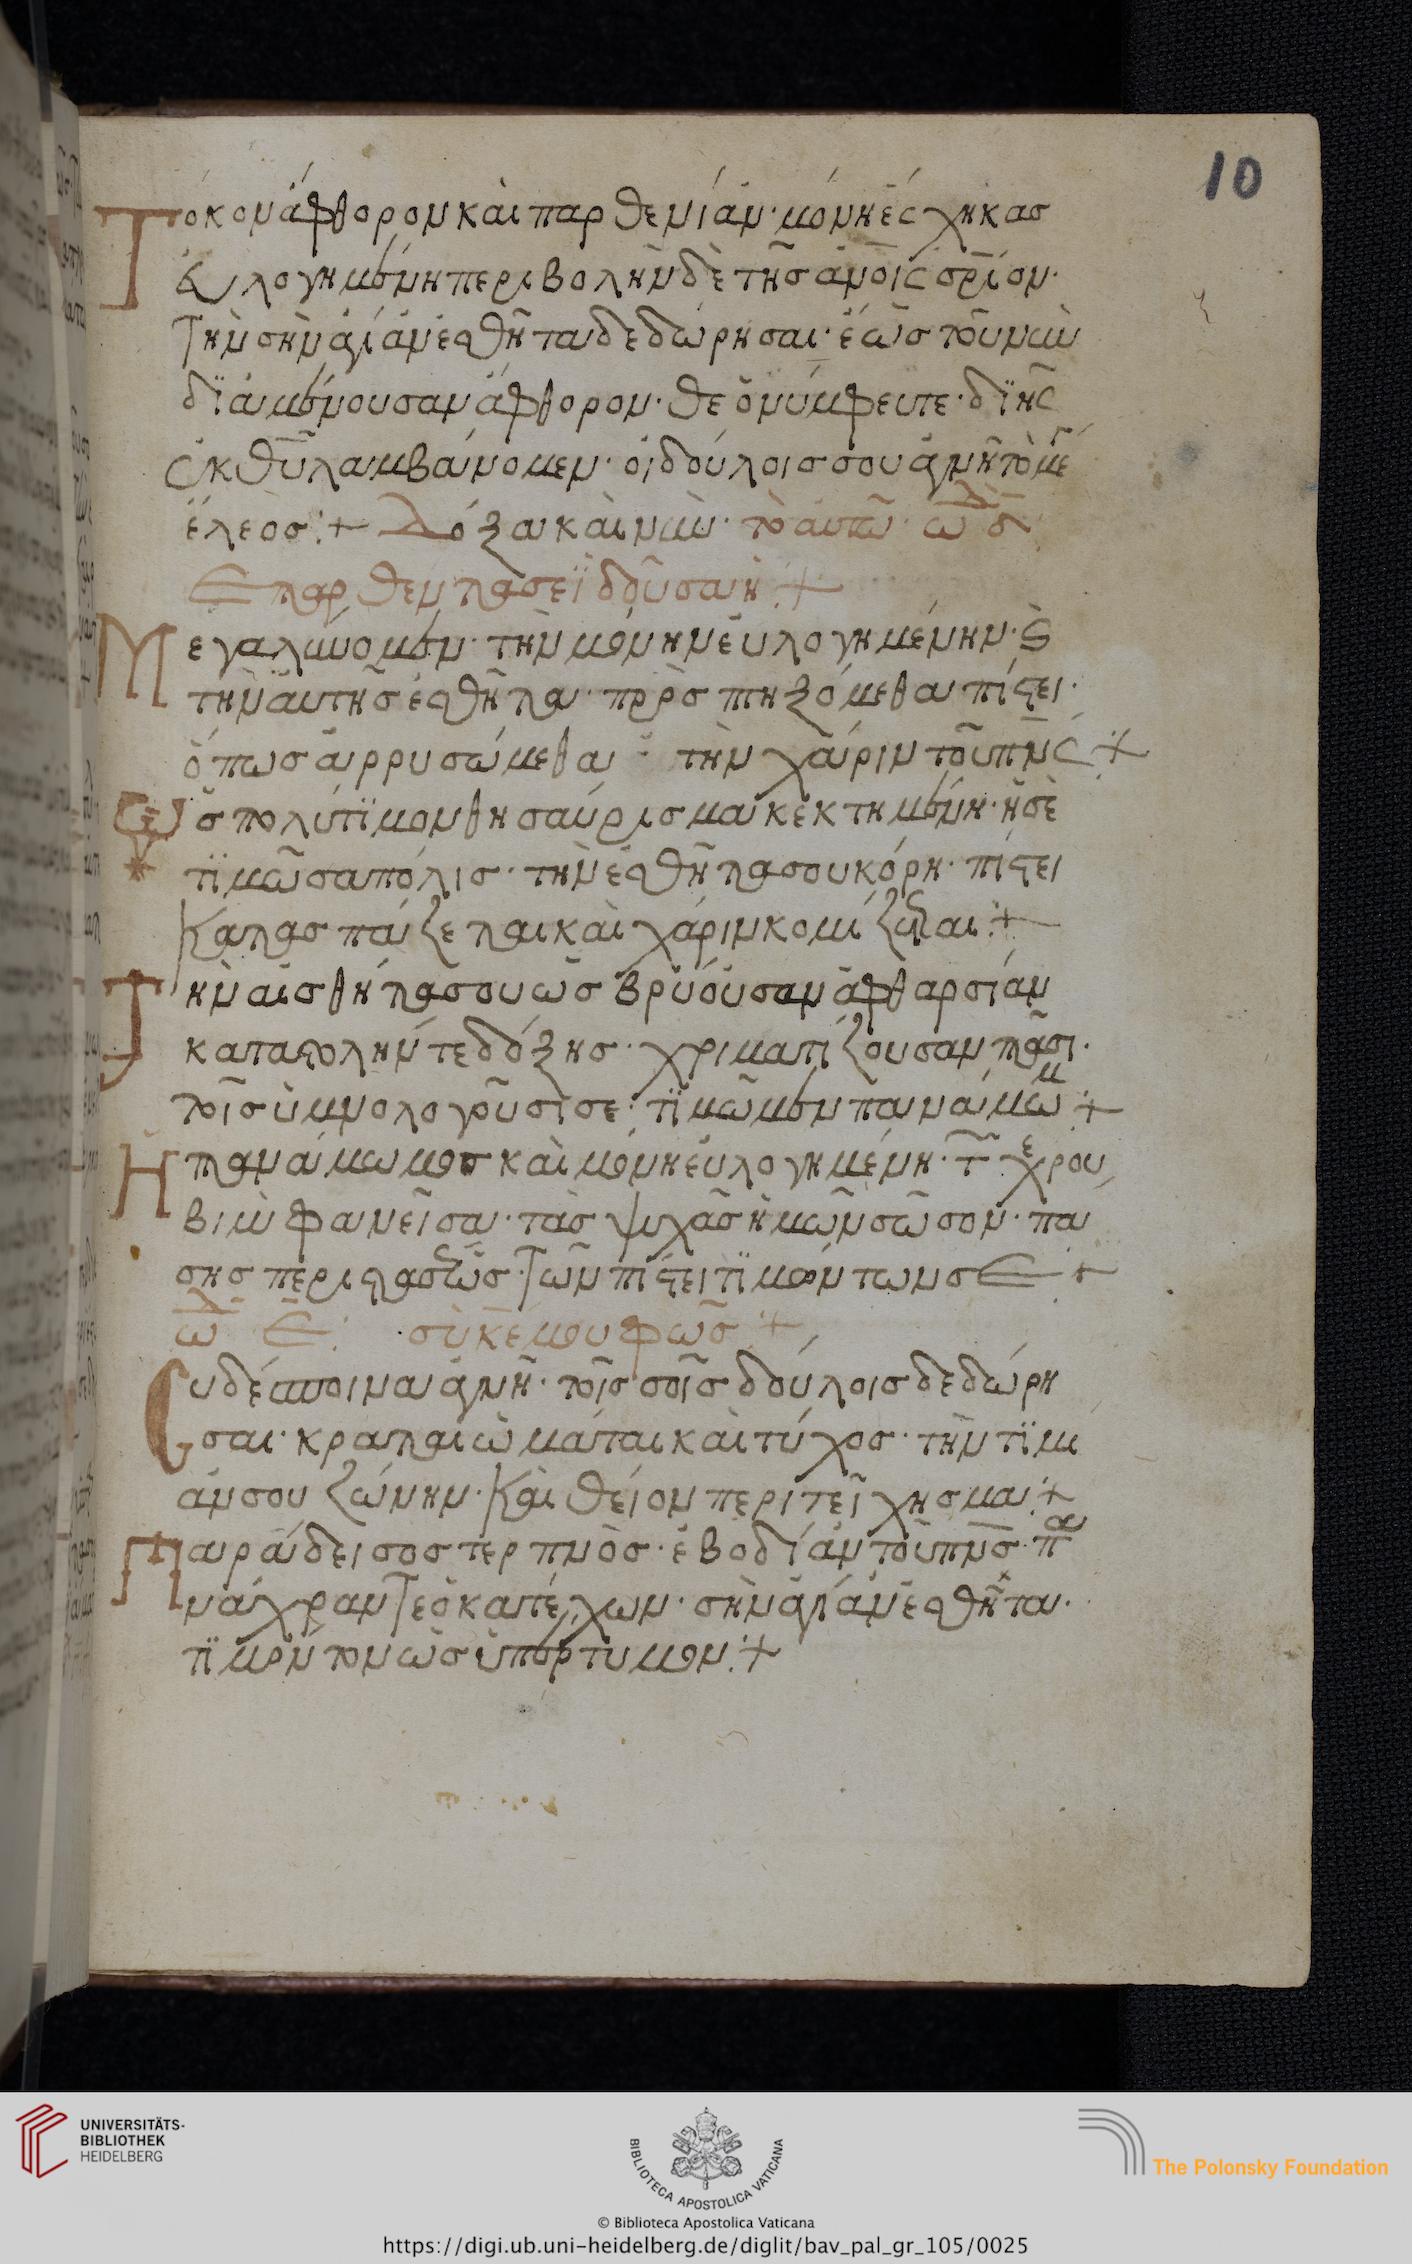 10
Τόκον ἄφθορον καὶ παρθενίαν· μόνη ἔσχηκας
εὐλογημένη περιβολὴν δὲ τῆς ἀνοις
Τὴν σὴν ἁγίαν ἐσθῆτα δεδώρησαι· ἕως τοῦ νῦν
διαμένουσαν ἄφθορον· θεονύμφευτε· δι ης
ἐκ θῦ λαμβάνομεν· οἱ δοῦλοις σου ἁγνὴ τὸ με
ἔλεος :+ Δόξα καὶ νῦν· τὸ αὐτῶ· ωδ δ
Επαρθεν πασεϊδοῦσα ἡ :+
Μεγαλύνομεν· τὴν μόνην εὐλογημένην· Ϛ
τὴν αὐτῆς ἐσθῆτα· προσπτηξόμεθα πίστει·
ὅπως ἀρρυσώμεθα· τὴν χάριν τοῦ πνς :+
Ὡς πολύτϊμον θησαύρισμα κεκτημένη· ἡ σὲ
τϊμῶσα πόλις· τὴν ἐσθῆτα σου κόρη· πίστει
κατασπάζεται καὶ χάριν κομίζεται :+
Τὴν αἰσθήτα σου ὡς βρύουσαν ἀφθαρσίαν
καταστολήν τε δόξης· χριματίζουσαν πᾶσι·
τοῖς ὑμνολογοῦσί σε· τϊμῶμεν πανάμωμ :+
Ἡ πανάμωμος καὶ μόνη εὐλογημένη· τ χερου
βὶμ φανεῖσα· τὰς ψυχὰς ἡμῶν σῶσον· πα
σης περιστάσεως· τῶν πίστει τϊμόντων σε +
ωδ ε· συ κε μου φως :+
Συ δέσποινα ἁγνὴ· τοῖς σοῖς δούλοις δεδώρη
σαι· κραταιὼμάται καὶ τύχος· τὴν τϊμί
αν σου ζώνην· καὶ θεῖον περιτείχησμα :+
Παράδεισος τερπνὸς· ἐβοδίαν τοῦ πνς· πα
νάχραντε ὁ κατέχων· σὴν ἁγίαν ἐσθῆτα·
τϊμὸν τον ὡς ὑπὲρτυμον :+
UNIVERSITÄTS-
BIBLIOTHEK
HEIDELBERG
BIBLIOTECA APOSTOLICA VATICANA
The Polonsky Foundation
© Biblioteca Apostolica Vaticana
https://digi.ub.uni-heidelberg.de/diglit/bav_pal_gr_105/0025